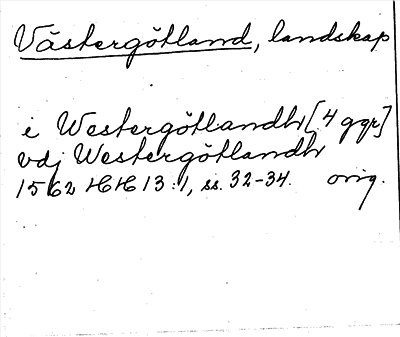 Västergötland, landskap
i Westergötlandh [4 ggr]
vdj Westergötlandh
1562 HH 13:1, ss. 32-34. orig.